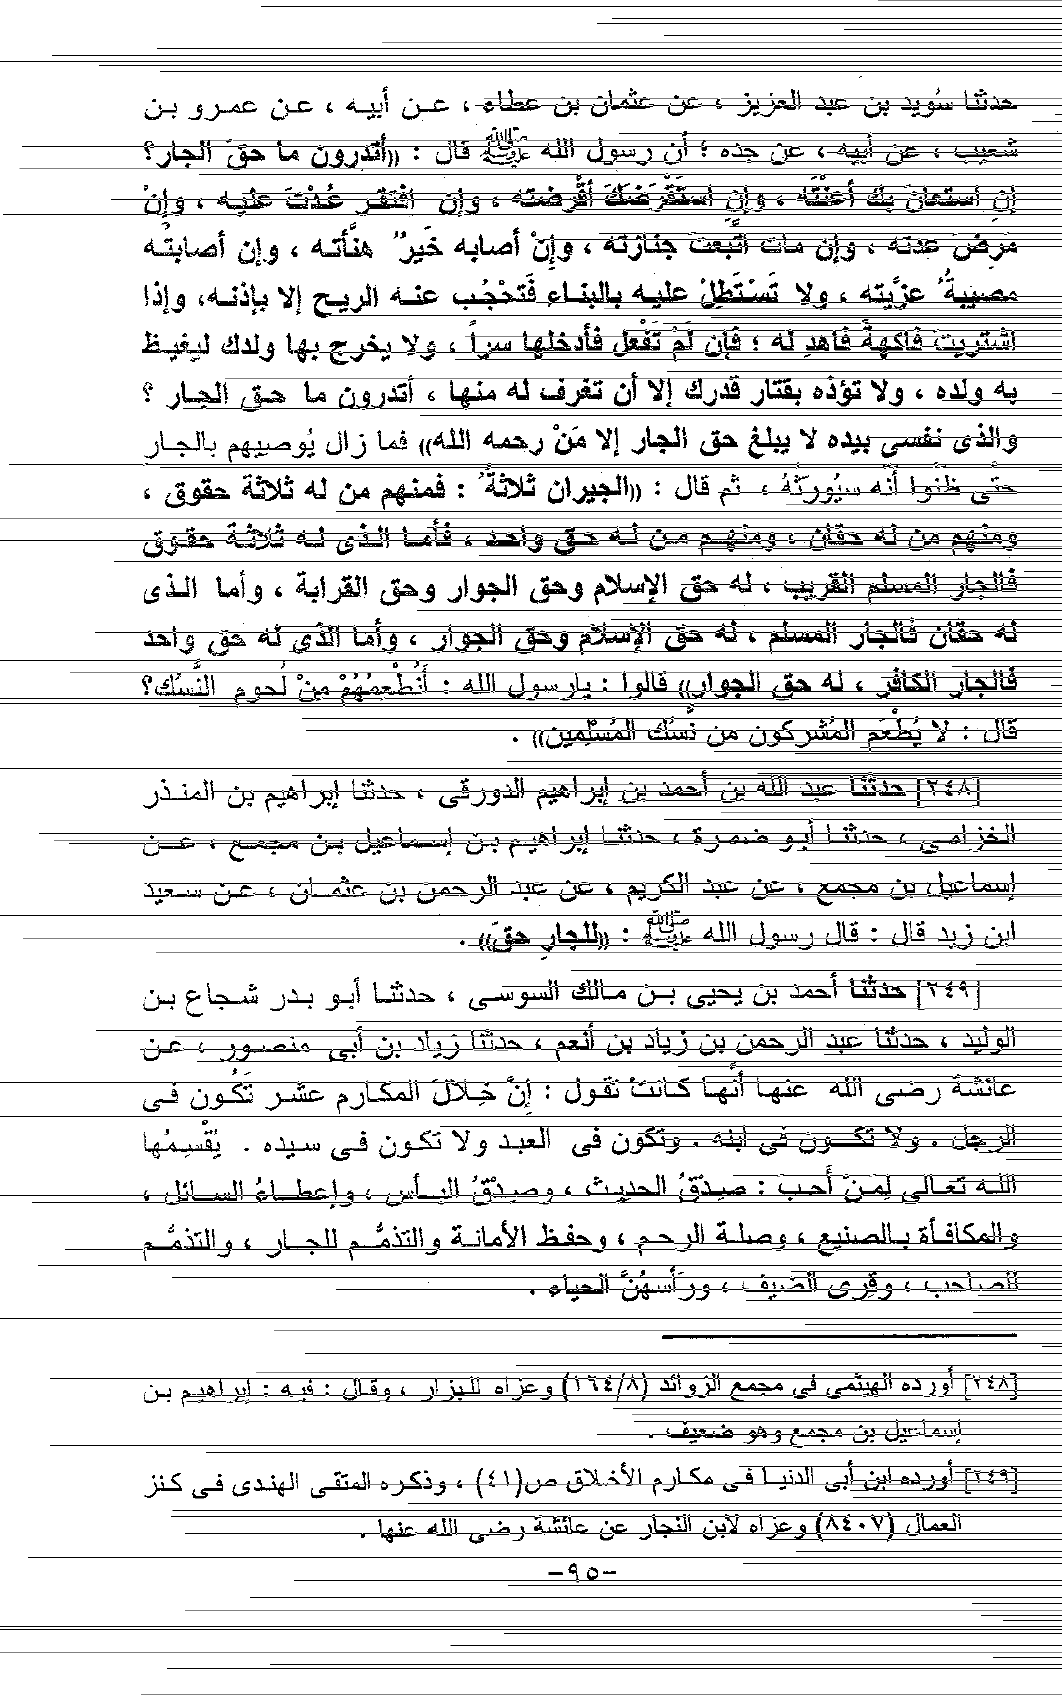 حدثنا سُويد بن عبد العزيز ، عن عثمان بن عطاء ، عـن أبيـه ، عـن عمـرو بـن
شعيب ، عن أبيه ، عن جده ؛ أن رسول الله ﷺ قال : ((أتدرون ما حقَ الجار؟
إن استعان بك أعَنْتَه ، وإن استَقْرَضَكَ أقْرضته ، وإن افْتقـر عُدْتَ عليـه ، وإنْ
مَرِضَ عدته ، وإن مات اتَّبعتَ جنازته ، وإنْ أصابه خَيرٌ هنَّأتـه ، وإن أصابتْـه
مصيبةٌ عزَّيته ، ولا تَسْتَطِلْ عليـه بالبنـاء فَتَحْجُب عنـه الريـح إلا بإذنـه، وإذا
اشتريتَ فاكهةً فاهدِ له ؛ فإن لَمْ تَفْعل فأدخلها سراً ، ولا يخرج بها ولدك ليغيـظ
به ولده ، ولا تؤذه بقتار قدرك إلا أن تغرف له منهـا ، أتدرون ما حـق الجـار ؟
والذى نفسى بيده لا يبلغ حق الجار إلا مَنْ رحمه الله)) فما زال يُوصيهم بالجـار
حتى ظَنُوا أنَّه سيُورثَهُ ، ثم قال : ((الجيران ثلاثةٌ : فمنهم من له ثلاثة حقوق ،
ومنهم من له حقان ، ومنهـم مـن لـه حـق واحـد ، فأمـا الـذى لـه ثلاثـة حقـوق
فالجار المسلم القريب ، له حق الإسلام وحق الجوار وحق القرابة ، وأما الـذى
له حقان فالجار المسلم ، له حق الإسلام وحق الجوار ، وأما الذى له حق واحد
فالجار الكافر ، له حق الجوار)) قالوا : يارسول الله : أنُطْعِمُهُمْ مِنْ لُحوم النُّسُك؟
قال : لا يُطْعَم المُشركون من نُسُك المُسْلِمين)) .
[٢٤٨] حدثنا عبد الله بن أحمد بن إبراهيم الدورقى ، حدثنا إبراهيم بن المنـذر
الخزامـى ، حدثنـا أبـو ضمـرة ، حدثنـا إبراهيـم بـن إسـماعيل بـن مجمـع ، عـن
إسماعيل بن مجمع ، عن عبد الكريم ، عن عبد الرحمن بن عثمـان ، عـن سـعيد
ابن زيد قال : قال رسول الله ﷺ : ((للجارِ حقَ)) .
[٢٤٩] حدثنا أحمد بن يحيى بـن مـالك السوسـى ، حدثنـا أبـو بـدر شـجاع بـن
الوليد ، حدثنا عبد الرحمن بن زياد بن أنعم ، حدثنا زياد بن أبى منصـور ، عـن
عائشة رضـى الله عنهـا أنَّهـا كـانتْ تقول : إنَّ خِـلالَ المكـارم عشْـر تَكُـون فـى
الرجل . ولا تكـون فى ابنه . وتكون فى العبـد ولا تكـون فـى سـيده . يُقْسِـمُها
اللـه تعـالى لِمـنْ أحـبَ : صِدْقُ الحديـث ، وصِدْقُ البـأس ، وإعطـاءُ السـائل ،
والمكافـأة بـالصنيع ، وصلـة الرحـم ، وحفـظ الأمانـة والتذمُّـم للجـار ، والتذمُّـم
للصاحب ، وقِرى الضيف ، ورأسهُنَّ الحياء .
[٢٤٨] أورده الهيثمى فى مجمع الزوائد (١٦٤/٨) وعزاه للبزار ، وقـال : فيـه : إبراهيـم بـن
إسماعيل بن مجمع وهو ضعيف .
[٢٤٩] أورده ابن أبى الدنيـا فـى مكـارم الأخـلاق ص(٤١) ، وذكـره المتقـى الهنـدى فـى كنـز
العمال (٨٤٠٧) وعزاه لابن النجار عن عائشة رضى الله عنها .
-٩٥-